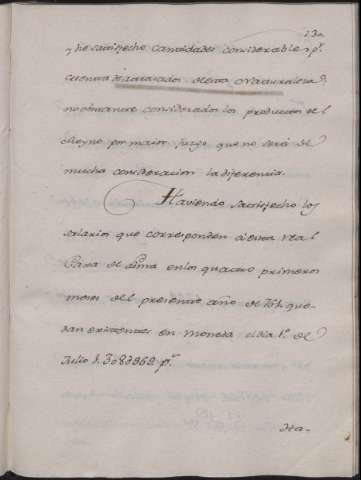 y he satisfecho cantidades considerables pr.
cuenta de atrasados de esta Naturaleza,
no obstante considerados los productos del
Reyno por maior juzgo que no será de
mucha consideracion la diferencia.
Haviendo satisfecho los
salarios que corresponden á esta real
Caxa de Lima en los quatro primeros
meses del presente año de que-
dan existentes en Moneda el dia 1o. de
Julio